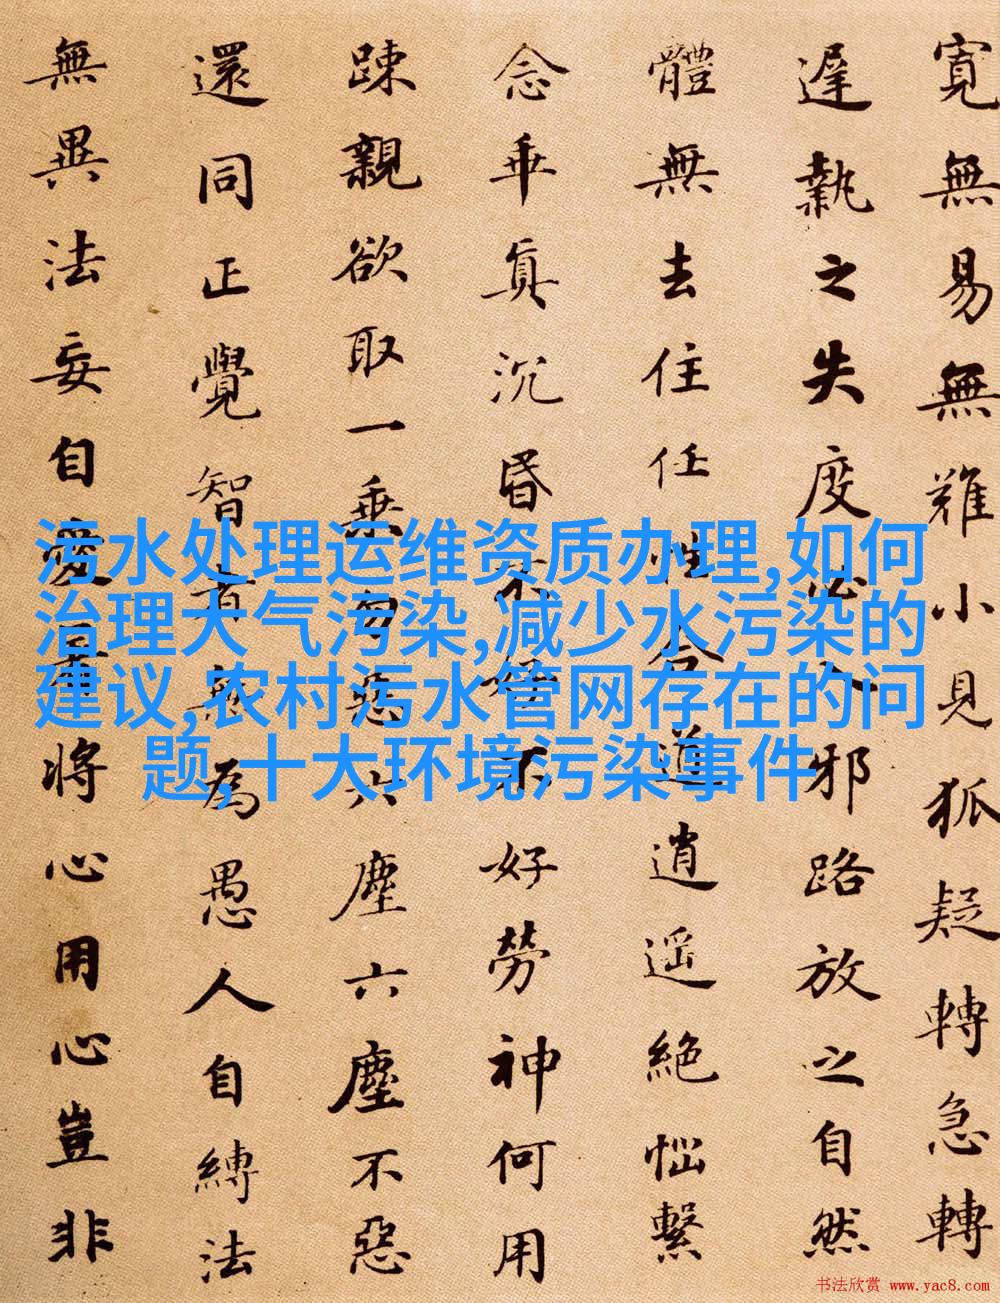 寬無易無難小見狐疑轉急轉
遲執之失度必入邪路放之自然
體無去住任性合道逍遙絕惱繫
念乖真沉昏不好不好勞神何用
踈親欲取一乘勿惡六塵六塵不惡
還同正覺智者無為愚人自縛法
無異法妄自愛著將心用心豈非
污水处理运维资质办理,如何
治理大气污染,减少水污染的
建议,农村污水管网存在的问
题,十大环境污染事件
书法欣赏 www.yac8.com